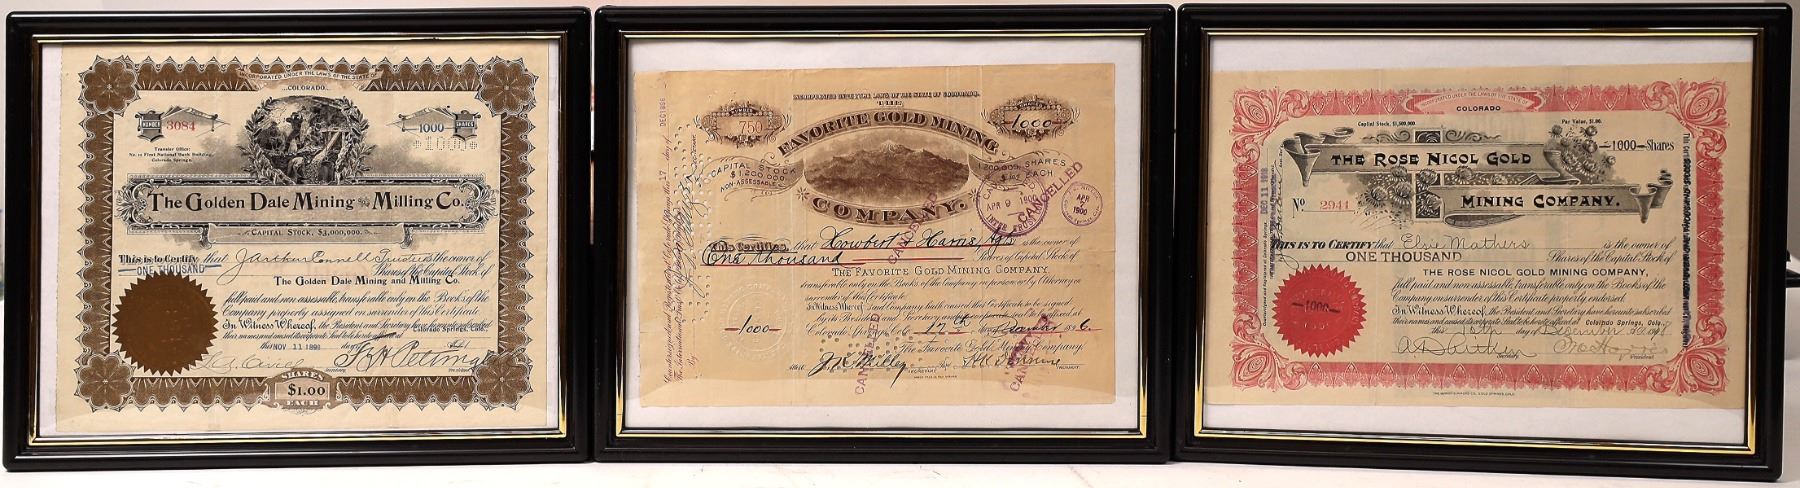 INCORPORATED UNDER THE LAWS OF THE STATE OF
COLORADO
NUMBER 3084
1000 SHARES
Transfer Office:
No. 10 First National Bank Building,
Colorado Springs.
The Golden Dale Mining and Milling Co.
CAPITAL STOCK, $3,000,000.
This is to Certify that J Arthur Connell Trustee is the owner of
ONE THOUSAND Shares of the Capital Stock of
The Golden Dale Mining and Milling Co.
full paid and non assessable, transferable only on the Books of the
Company properly assigned on surrender of this Certificate.
In Witness Whereof, the President and Secretary
Colorado Springs, Colo.
this NOV 11 1898
Secretary President
SHARES
$1.00
EACH
INCORPORATED UNDER THE LAWS OF THE STATE OF COLORADO.
THE
750
1000
FAVORITE GOLD MINING
COMPANY.
CAPITAL STOCK
$1,200,000.
NON-ASSESSABLE
1,200,000 SHARES
$1.00 EACH
CANCELLED
APR 9 1900
APR
7
1900
This Certifies that Howbert & Harris Agts is the owner of
One thousand Shares of Capital Stock of
THE FAVORITE GOLD MINING COMPANY,
transferable only on the Books of the Company in person or by Attorney on
surrender of this Certificate.
In Witness Whereof, Said Company hath caused this Certificate to be signed
by its President and Secretary and its corporate seal to be affixed at
Colorado Springs, Colo. 17th 1896.
1000
The Favorite Gold Mining Company,
CANCELLED
CANCELLED
CANCELLED
INCORPORATED UNDER THE LAWS OF THE STATE OF
COLORADO
Capital Stock, $1,500,000.
Par Value, $1.00.
1000 Shares
THE ROSE NICOL GOLD
MINING COMPANY.
No 2944
DEC 11 1908
THIS IS TO CERTIFY that Elsie Mathers is the owner of
ONE THOUSAND Shares of the Capital Stock of
THE ROSE NICOL GOLD MINING COMPANY,
full paid and non assessable, transferable only on the Books of the
Company on surrender of this Certificate properly endorsed.
IN WITNESS WHEREOF, the President and Secretary have hereunto subscribed
their names and caused the corporate Seal to be hereto affixed at Colorado Springs, Colo.,
this day of December
1000
A D Aitken
Secretary President